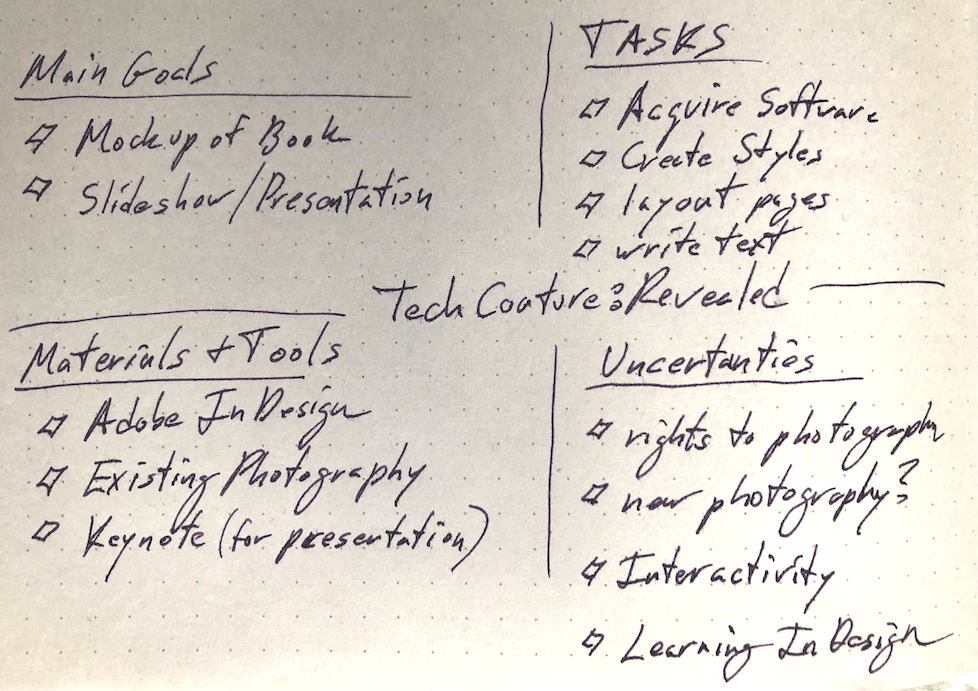 Main Goals
Mockup of Book
Slideshow/Presentation
TASKS
Acquire Software
Create Styles
layout pages
write text
Tech Coature: Revealed
Materials + Tools
Adobe InDesign
Existing Photography
Keynote (for presentation)
Uncertanties
rights to photography
new photography?
Interactivity
Learning InDesign